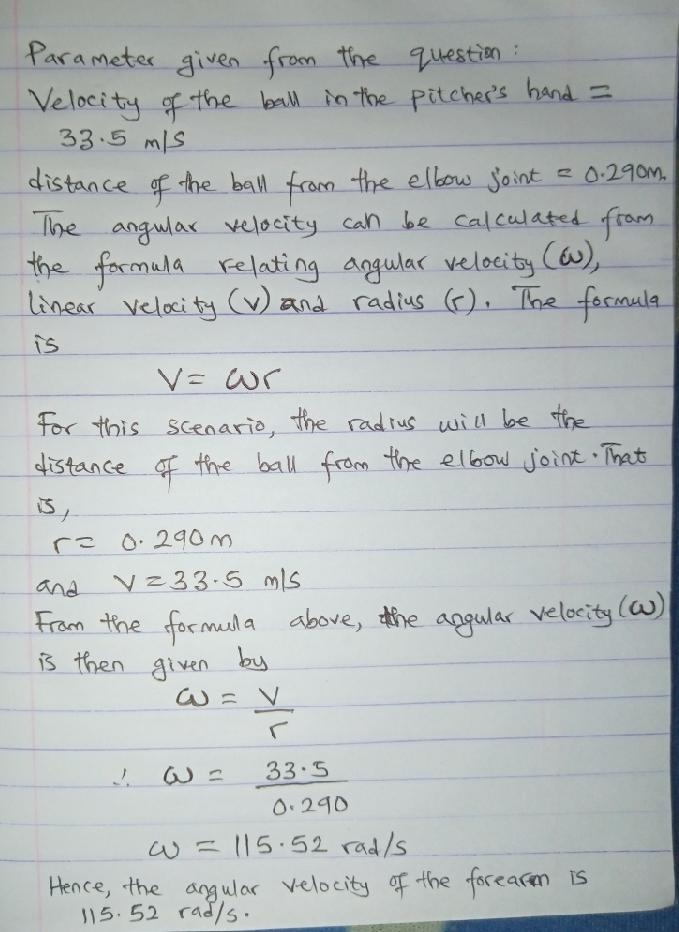 Parameter given from the question:
Velocity of the ball in the pitcher's hand =
33.5 m/s
distance of the ball from the elbow joint = 0.290m.
The angular velocity can be calculated from
the formula relating angular velocity (ω),
linear velocity (v) and radius (r). The formula
is
V = ωr
For this scenario, the radius will be the
distance of the ball from the elbow joint. That
is,
r = 0.290m
and V = 33.5 m/s
From the formula above, the angular velocity (ω)
is then given by
ω = V
r
∴ ω = 33.5
0.290
ω = 115.52 rad/s
Hence, the angular velocity of the forearm is
115.52 rad/s.